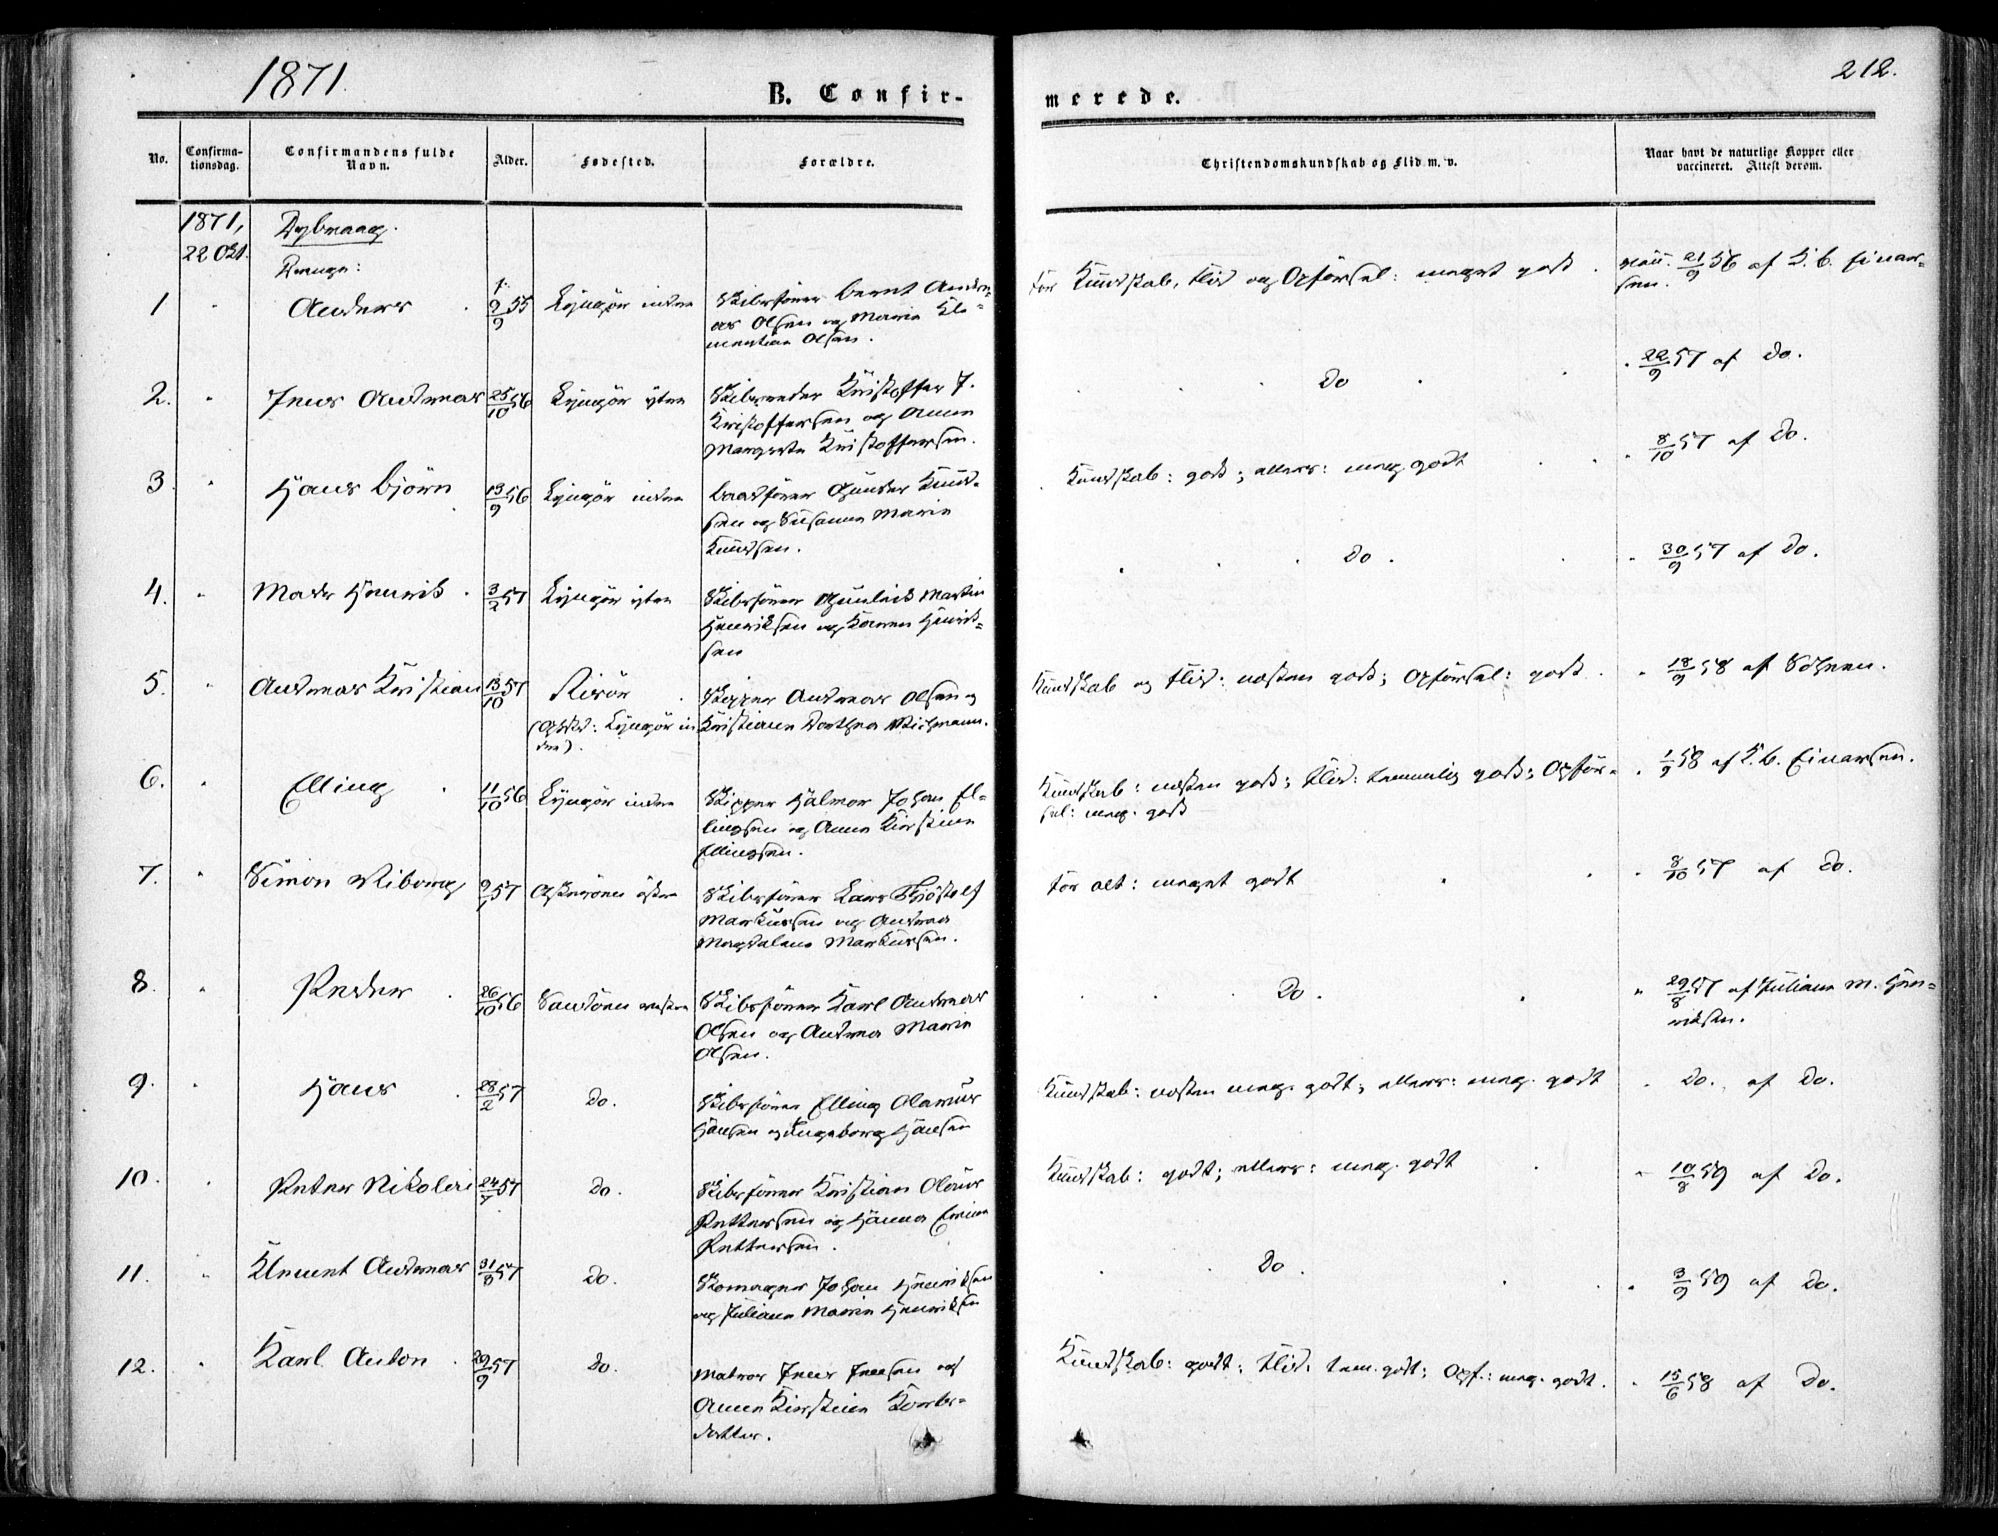 1871.
212.
B. Confir-
merede.
No.
Confirma-
tionsdag.
Confirmandens fulde
Navn.
Alder.
Fødested.
Forældre.
Christendomskundskab og Flid m. v.
Naar havt de naturlige Kopper eller
vaccineret. Attest derom.
1871,
22 Okt.
Dybvaag.
Drenge:
1
Anders
9/9 55
Lyngör indre
Skibsförer Bernt Andre-
as Olsen og Maria Kle-
mentine Olsen.
For Kundskab, Flid og Opförsel: meget godt.
21/9 56 af K. B. Einar-
sen.
2.
Jens Andreas
25/10 56
Lyngör ytre
Skibsreder Kristoffer J.
Kristoffersen og Anne
Margrete Kristoffersen.
Do
22/9 57 af Do.
3
Hans Björn
13/9 56
Lyngör indre
Baadförer Gunder Knud-
sen og Susanne Marie
Knudsen.
Kundskab: godt; ellers: meg. godt
8/10 57 af Do.
4.
Mads Henrik
3/2 57
Lyngör ytre
Skibsförer Gunleik Martin
Henriksen og Karen Henrik-
sen
Do.
30/9 57 af Do.
5.
Andreas Kristian
13/10 57
Risör
(Opholdst: Lyngör in
dre).
Skipper Andreas Olsen og
Kristiane Dorthea Wichmann.
Kundskab og Flid: næsten godt; Opförsel: godt.
18/9 58 af Sohnen.
6.
Elling
11/10 56
Lyngör indre
Skipper Hjalmar Johan El-
lingsen og Anne Kirstine
Ellingsen.
Kundskab: næsten godt; Flid: temmelig godt; Opför-
sel: meg. godt
1/9 58 af K. B. Einarsen.
7.
Simon Viborg
9/1 57
Askerøen östre
Skibsförer Lars Thjöstolf
Markussen og Andrea
Magdalene Markussen.
For alt: meget godt
8/10 57 af Do.
8.
Peder
26/10 56
Sandöen vestre
Skibsförer Karl Andreas
Olsen og Andrea Marie
Olsen.
Do.
29/8 57 af Juliane M. Hen-
riksen.
9.
Hans
28/2 57
Do.
Skibsförer Elling Olaus
Hansen og Ingeborg Hansen
Kundskab: næsten meg. godt; ellers: meg. godt
Do. af Do.
10.
Peter Nikolai
24/7 57
Do.
Skibsförer Kristian Olaus
Pettersen og Hanna Emine
Pettersen.
Kundskab: godt; ellers: meg. godt
10/8 59 af Do.
11.
Klement Andreas
31/8 57
Do.
Skomager Johan Henriksen
og Juliane Marie Henriksen
Do.
3/9 59 af Do.
12.
Karl Anton
29/9 57
Do.
Matros Jens Jensen og
Anne Kirstine Kors-
datter.
Kundskab: godt; Flid: tem. godt; Opf.: meg. godt.
15/6 58 af Do.